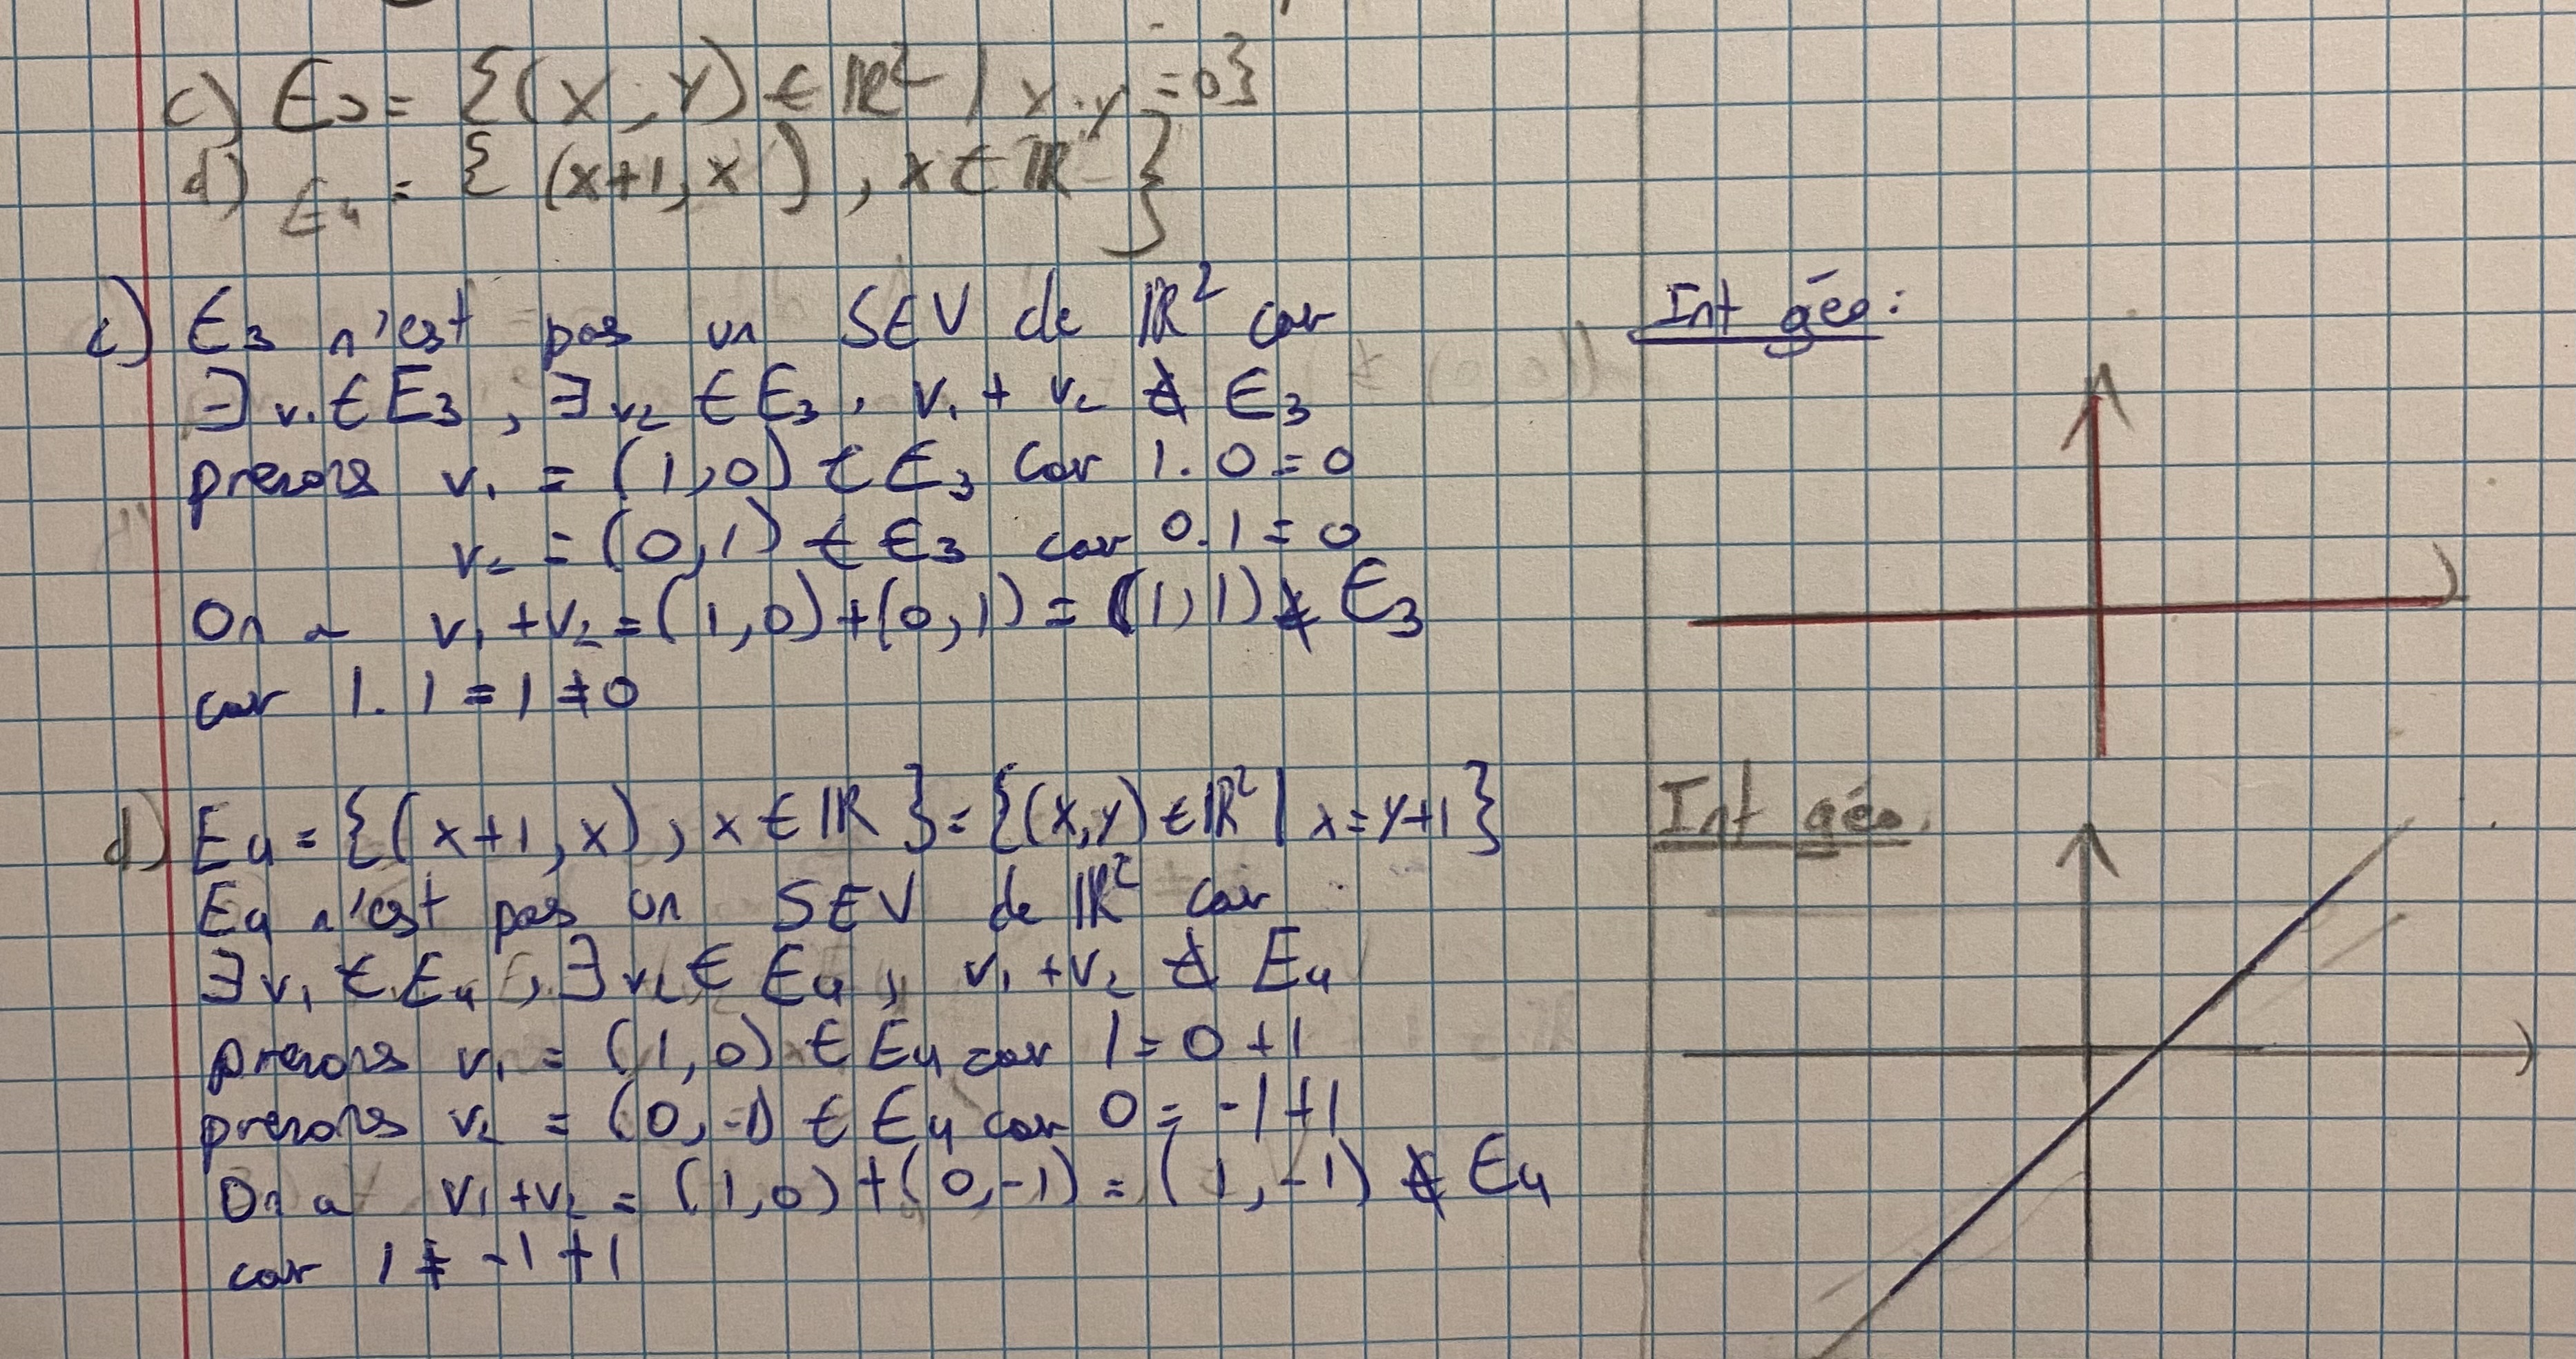 c) E3 = {(x,y) ∈ ℝ² | x.y = 0}
d) E4 = {(x+1,x), x ∈ ℝ}
c) E3 n'est pas un SEV de ℝ² car
∃ v1 ∈ E3, ∃ v2 ∈ E3, v1 + v2 ∉ E3
prenons v1 = (1,0) ∈ E3 car 1.0 = 0
v2 = (0,1) ∈ E3 car 0.1 = 0
On a v1 + v2 = (1,0)+(0,1) = (1,1) ∉ E3
car 1.1 = 1 ≠ 0
Int géo:
d) E4 = {(x+1,x), x ∈ ℝ} = {(x,y) ∈ ℝ² | x = y+1}
E4 n'est pas un SEV de ℝ² car
∃ v1 ∈ E4, ∃ v2 ∈ E4, v1 + v2 ∉ E4
prenons v1 = (1,0) ∈ E4 car 1 = 0 + 1
prenons v2 = (0,-1) ∈ E4 car 0 = -1 + 1
On a v1 + v2 = (1,0) + (0,-1) = (1,-1) ∉ E4
car 1 ≠ -1 + 1
Int géo.